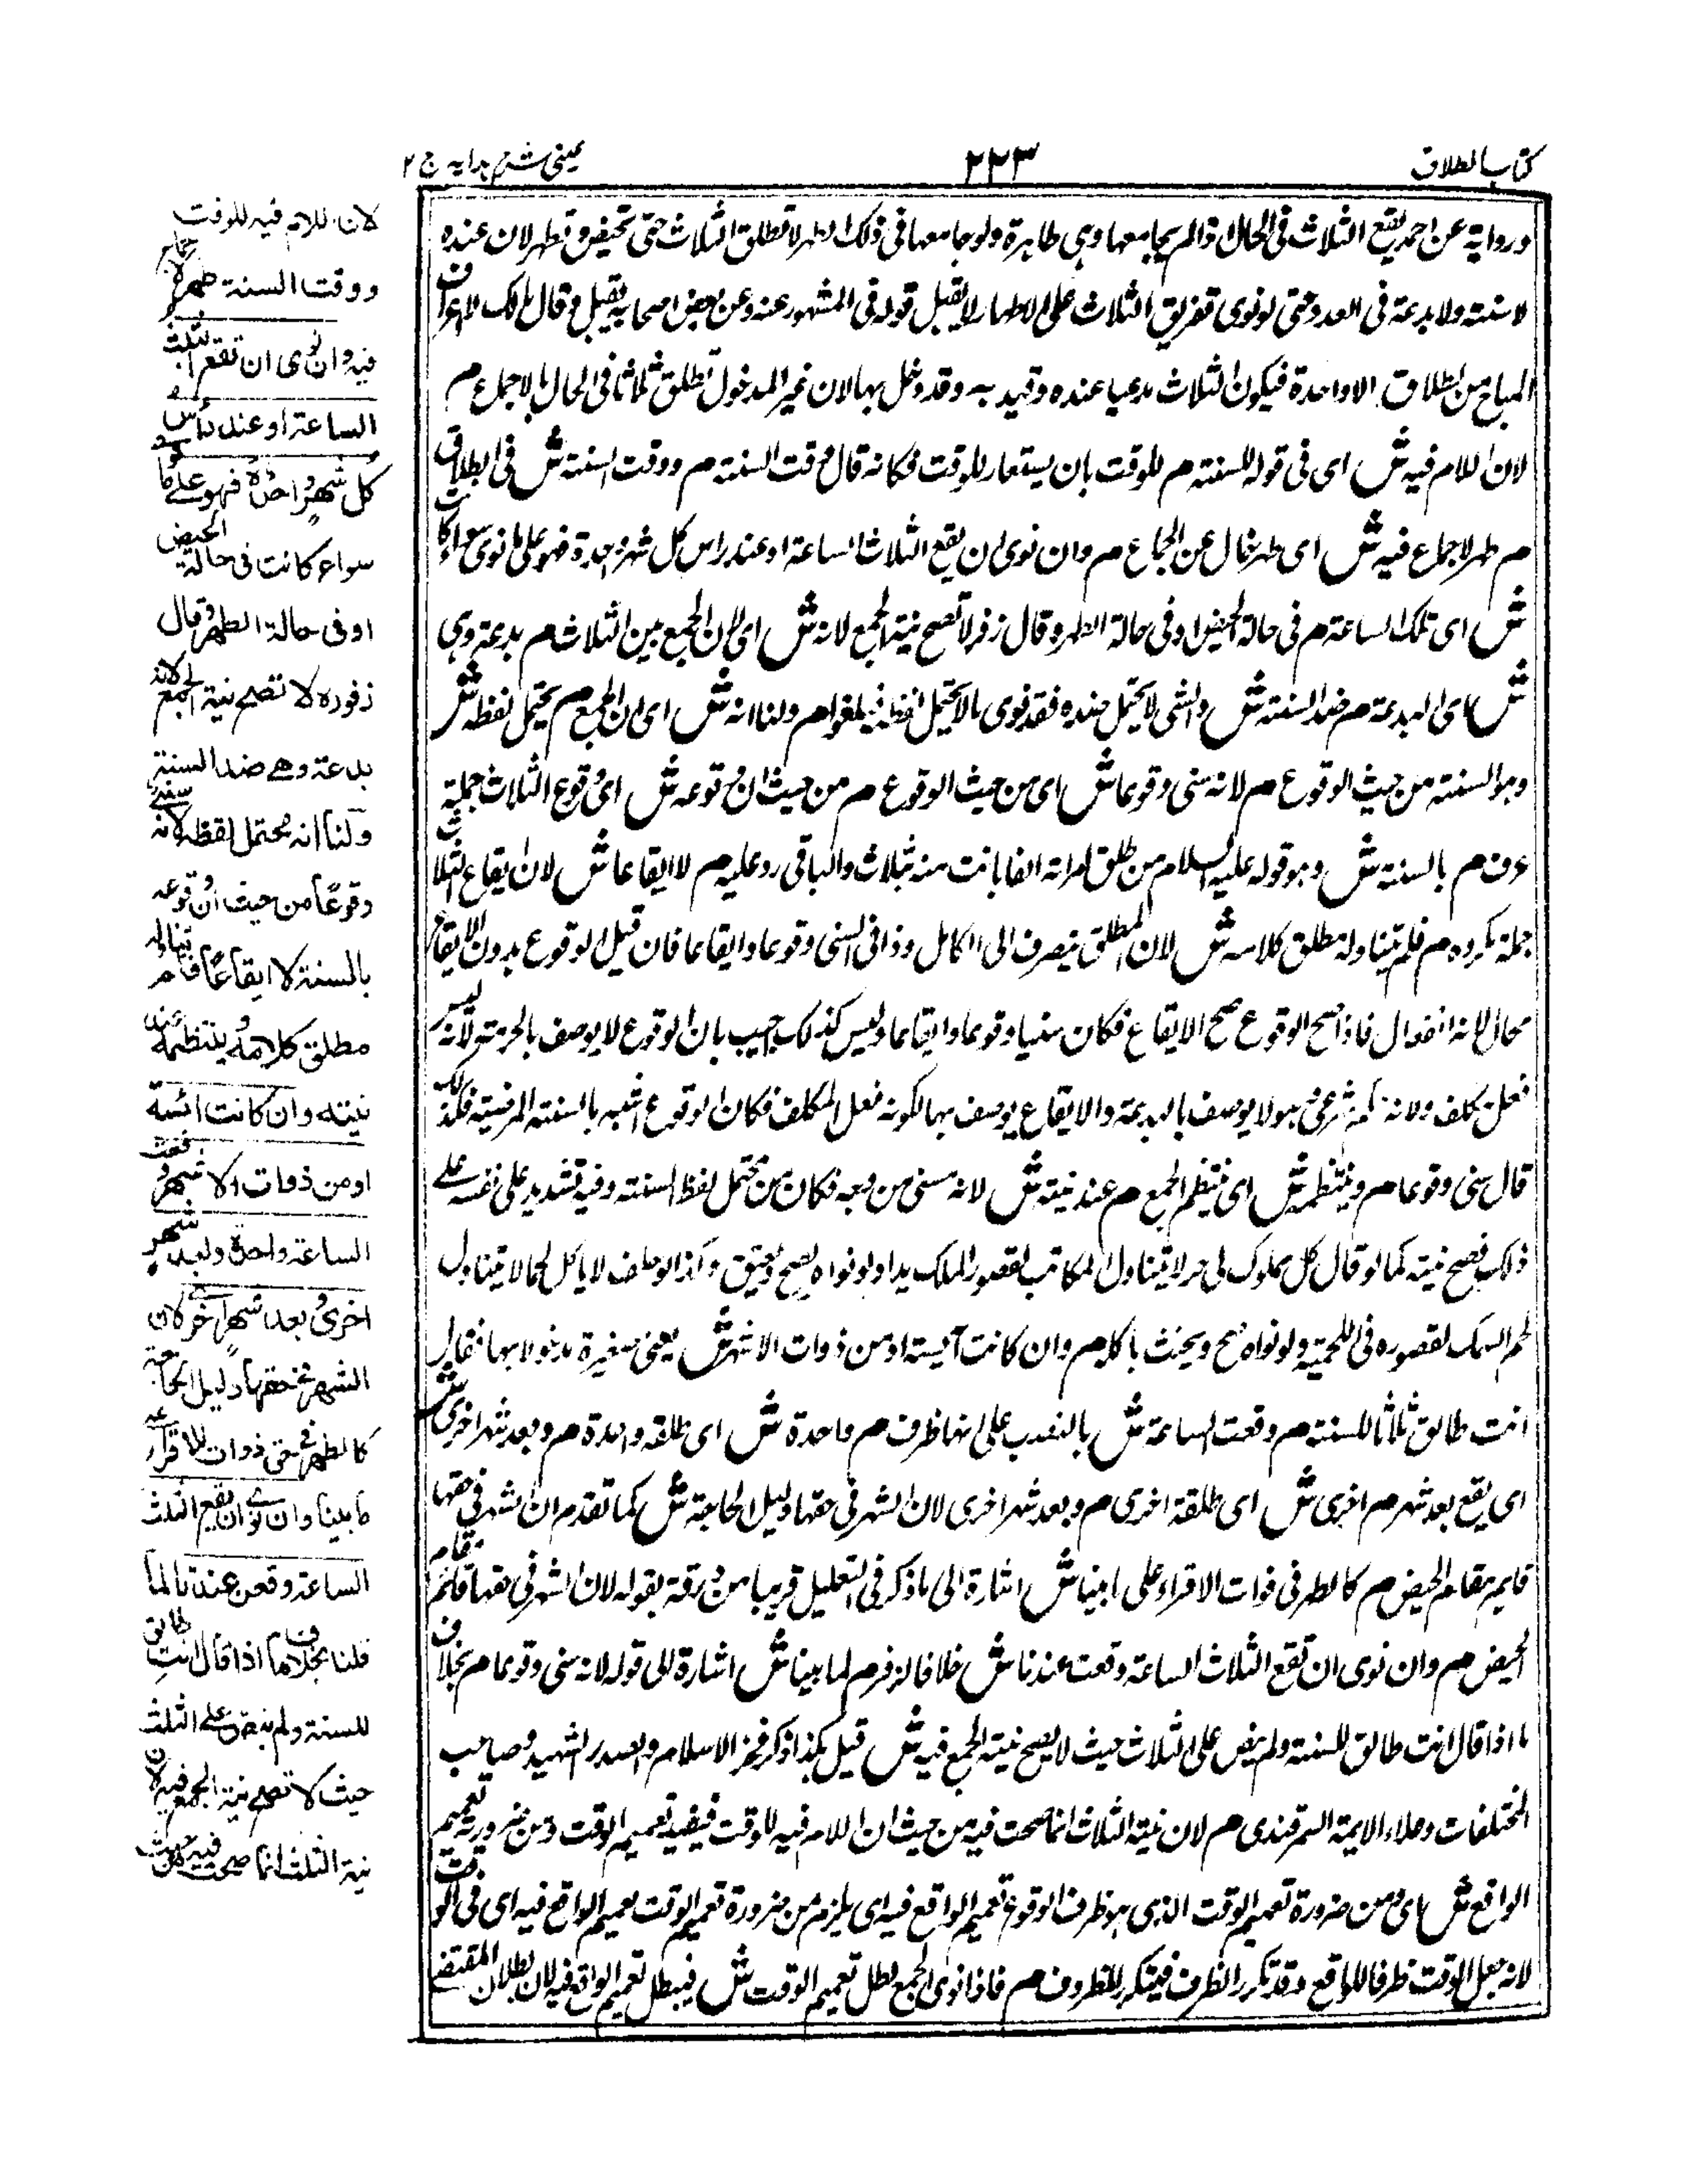 كتاب الطلاق
٢٢٣
عينى شرح هدايه ج ٢
ورواية عن احمد يقع الثلاث فى الحال اذا لم يجامعها وهى طاهرة ولو جامعها فى ذلك الطهر لا تطلق الثلاث حتى تحيض وتطهر لان عنده
لا سنة ولا بدعة فى العدد وحتى لو نوى تفريق الثلاث على الاطهار لا يقبل قوله فى المشهور عنه وعن بعض اصحابه يقبل وقال مالك لا اعرف
المباح من الطلاق الا واحدة فيكون الثلاث بدعيا عنده وقيد به وقد دخل بها لان غير المدخول تطلق ثلاثا فى الحال بالاجماع م
لان اللام فيه ش اى فى قوله للسنة م للوقت بان يستعار للوقت فكانه قال وقت السنة م ووقت السنة ش فى الطلاق
م طهر لا جماع فيه ش اى طهر خال عن الجماع م وان نوى ان يقع الثلاث الساعة او عند راس كل شهر واحدة فهو على ما نوى سواء كانت
ش اى تلك الساعة م فى حالة الحيض او فى حالة الطهر وقال زفر لا تصح نية الجمع لانه ش اى لان الجمع بين الثلاث م بدعة وهى
ش اى البدعة م ضد السنة ش والشى لا يحتمل ضده فقد نوى ما لا يحتمل لفظه فيلغوا م ولنا انه ش اى ان الجمع م يحتمل لفظه ش
وهو السنة من حيث الوقوع م لانه سنى وقوعا ش اى من حيث الوقوع م من حيث ان وقوعه ش اى وقوع الثلاث جملة
عرف م بالسنة ش وهو قوله عليه السلام من طلق امراته الفا بانت منه بثلاث والباقى رد عليه م لا ايقاعا ش لان ايقاع الثلاث
جملة مكروه م فلم يتناوله مطلق كلامه ش لان المطلق ينصرف الى الكامل وذا فى السنى وقوعا وايقاعا فان قيل الوقوع بدون الايقاع
محال لانه انفعال فاذا صح الوقوع صح الايقاع فكان سنيا وقوعا وايقاعا وليس كذلك اجيب بان الوقوع لا يوصف بالحرمة لانه ليس
فعل مكلف ولانه حكم شرعى وهو لا يوصف بالبدعة والايقاع يوصف بها لكونه فعل المكلف فكان الوقوع اشبه بالسنة المرضية فلذلك
قال سنى وقوعا م وينتظمه ش اى ينتظم الجمع م عند نيته ش لانه سنى من وجه فكان من محتمل لفظ السنة وفيه تشديد على نفسه على
ذلك فصح نيته كما لو قال كل مملوك لى حر لا يتناول المكاتب لقصور الملك يدا ولو نواه يصح ويعتق وكذا لو حلف لا ياكل لحما لا يتناول
لحم السمك لقصوره فى اللحمية ولو نواه صح ويحنث باكله م وان كانت آيسة او من ذوات الاشهر ش يعنى صغيرة مدخولا بها فقال
انت طالق ثلاثا للسنة م وقعت الساعة ش بالنصب على انها ظرف م واحدة ش اى طلقة واحدة م وبعد شهر اخرى ش
اى يقع بعد شهر م اخرى ش اى طلقة اخرى م وبعد شهر اخرى لان الشهر فى حقها دليل الحاجة ش كما تقدم ان الشهر فى حقها
قايم مقام الحيض م كالطهر فى ذوات الاقراء على ما بينا ش اشارة الى ما ذكر فى التعليل قريبا من ورقة بقوله لان الشهر فى حقها قائم مقام
الحيض م وان نوى ان تقع الثلاث الساعة وقعت عندنا ش خلافا لزفر م لما بينا ش اشارة الى قوله لانه سنى وقوعا م بخلاف
ما اذا قال انت طالق للسنة ولم ينص على الثلاث حيث لا يصح نية الجمع فيه ش قيل هكذا ذكر فخر الاسلام والصدر الشهيد وصاحب
المختلفات وعلاء الايمة السمرقندى م لان نية الثلاث انما صحت فيه من حيث ان اللام فيه للوقت فيفيد تعميم الوقت ومن ضرورته تعميم
الواقع ش اى ومن ضرورة تعميم الوقت الذى هو ظرف الوقوع تعميم الواقع فيه اى يلزم من ضرورة تعميم الوقت تعميم الواقع فيه اى فى الوقت
لانه جعل الوقت ظرفا للواقع وقد تكرر الظرف فيتكرر المظروف م فاذا نوى الجمع بطل تعميم الوقت ش فيبطل تعميم الواقع فيه لان بطلان المقتضى
لان اللام فيه للوقت
ووقت السنة طهر لا جماع
فيه وان نوى ان تقع الثلث
الساعة او عند رأس
كل شهر واحدة فهو على ما نوى
سواء كانت فى حالة الحيض
او فى حالة الطهر وقال
زفر ره لا تصح نية الجمع لانه
بدعة وهے ضد السنة
ولنا انه محتمل لفظه لانه سنى
وقوعًا من حيث ان وقوعه
بالسنة لا ايقاعًا فلم يتناوله
مطلق كلامه وينتظمه عند
نيته وان كانت ائسة
او من ذوات الاشهر وقعت
الساعة واحدة وبعد شهر
اخرى وبعد شهر اخرى لان
الشهر فى حقها دليل الحاجة
كالطهر فى حق ذوات الاقراء على
ما بينا وان نوى ان يقع الثلث
الساعة وقعن عندنا لما
قلنا بخلاف ما اذا قال انت طالق
للسنة ولم ينص على الثلث
حيث لا تصح نية الجمع فيه لان
نية الثلث انما صحت فيه من حيث